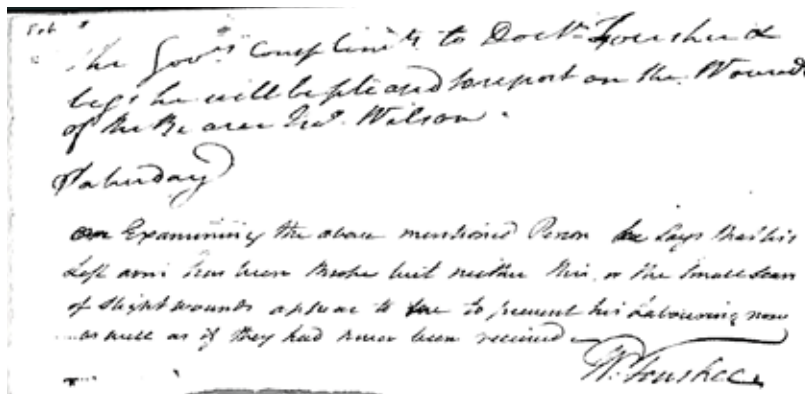 Feb
The Gov.rs Compliments to Doct.r Foushee &
begs he will be pleased to report on the Wounds
of the Bearer Wilson.
Saturday
on Examining the above mentioned Person he Says that his
Left arm has been broke but neither this, or the Small Scars
of Slight wounds appear to be to prevent his Labouring now
as well as if they had never been received
W. Foushee